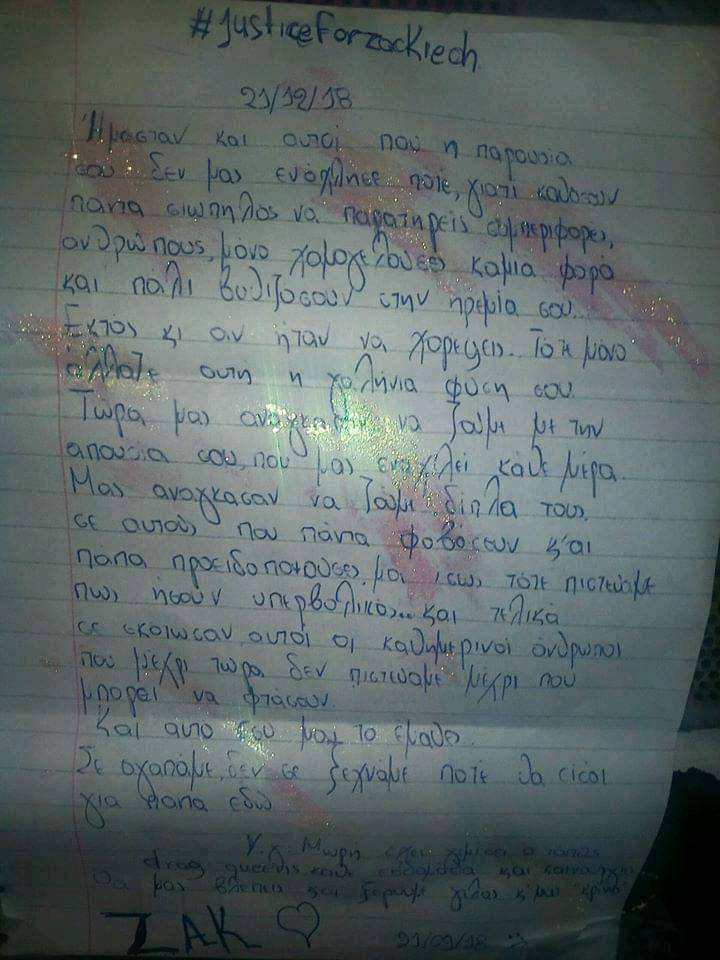 #JusticeForzackiech
21/12/18
Ήμασταν και αυτοί που η παρουσία
σου δεν μας ενόχλησε ποτέ, γιατί καθόσουν
πάντα σιωπηλός να παρατηρείς συμπεριφορές,
ανθρώπους, μόνο χαμογελούσες καμια φορά
και πάλι βυθιζόσουν στην ηρεμία σου...
Εκτός κι αν ήταν να χορέψεις. Τότε μόνο
άλλαζε αυτή η γαλήνια φύση σου
Τώρα μας αναγκάζουν να ζούμε με την
απουσία σου, που μας ενοχλεί κάθε μέρα.
Μας αναγκασαν να ζούμε δίπλα τους,
σε αυτούς που πάντα φοβόσουν και
πάντα προειδοποιούσες μα ίσως τότε πιστεύαμε
πως ήσουν υπερβολικός... και τελικά
σε σκότωσαν αυτοί οι καθημερινοί άνθρωποι
που μέχρι τώρα δεν πιστεύαμε μέχρι που
μπορεί να φτάσουν.
Και αυτό εσύ μας το έμαθες
Σε αγαπάμε, δεν σε ξεχνάμε ποτέ θα είσαι
για πάντα εδώ
Υ.γ. Μωρή έχει γεμίσει ο τόπος
drag queens κάθε εβδομάδα και
θα μας βλέπεις και ξέρουμε γελάς και μας
ZAK ♡
21/09/18